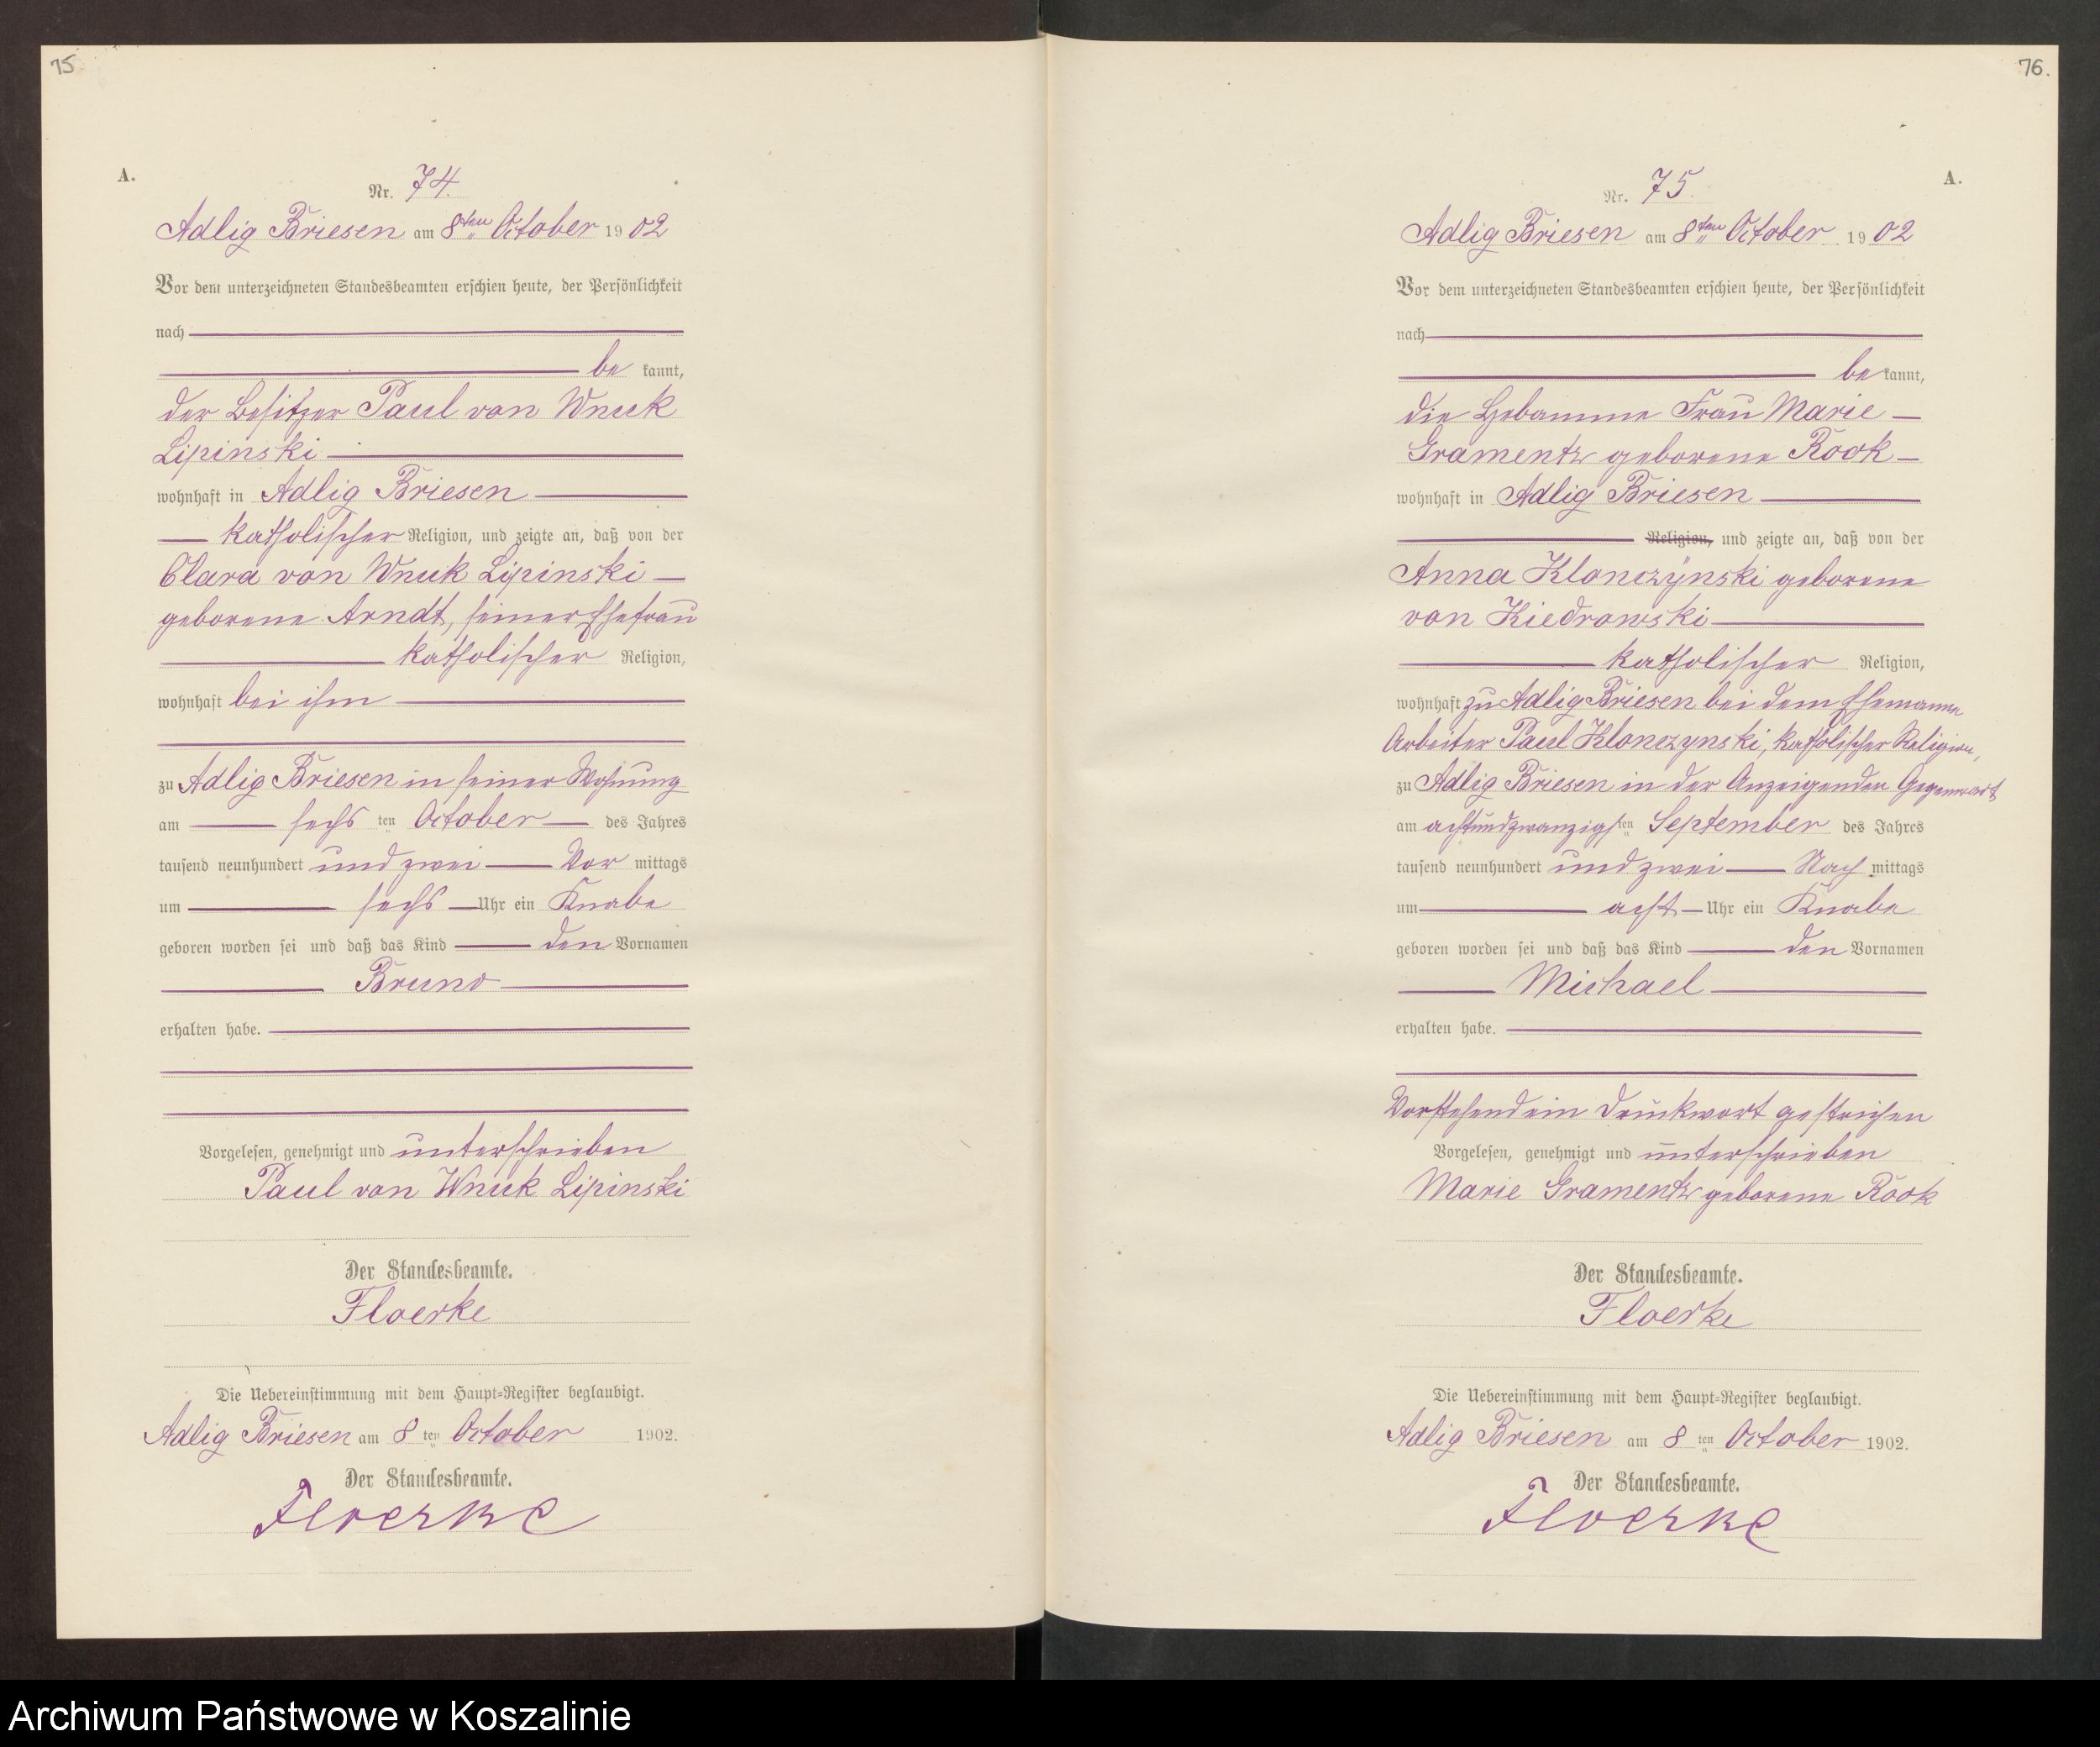 75
A.
Nr. 74.
Adlig Briesen am 8ten October 1902
Vor dem unterzeichneten Standesbeamten erschien heute, der Persönlichkeit
nach
be kannt,
der Besitzer Paul von Wnuk
Lipinski
wohnhaft in Adlig Briesen
katholischer Religion, und zeigte an, daß von der
Clara von Wnuk Lipinski
geborene Arndt, seiner Ehefrau
katholischer Religion,
wohnhaft bei ihm
zu Adlig Briesen in seiner Wohnung
am sechs ten October des Jahres
tausend neunhundert und zwei Vor mittags
um sechs Uhr ein Knabe
geboren worden sei und daß das Kind den Vornamen
Bruno
erhalten habe.
Vorgelesen, genehmigt und unterschrieben
Paul von Wnuk Lipinski
Der Standesbeamte.
Floerke
Die Uebereinstimmung mit dem Haupt-Register beglaubigt.
Adlig Briesen am 8 ten October 1902.
Der Standesbeamte.
Floerke
76.
A.
Nr. 75.
Adlig Briesen am 8ten October 1902
Vor dem unterzeichneten Standesbeamten erschien heute, der Persönlichkeit
nach
be kannt,
die Hebamme Frau Marie
Gramentz geborene Rook
wohnhaft in Adlig Briesen
Religion, und zeigte an, daß von der
Anna Klonczynski geborene
von Kiedrowski
katholischer Religion,
wohnhaft zu Adlig Briesen bei dem Ehemanne
Arbeiter Paul Klonczynski, katholischer Religion,
zu Adlig Briesen in der Anzeigenden Gegenwart
am achtundzwanzigsten September des Jahres
tausend neunhundert und zwei Nach mittags
um acht Uhr ein Knabe
geboren worden sei und daß das Kind den Vornamen
Michael
erhalten habe.
Vorstehend ein Druckwort gestrichen
Vorgelesen, genehmigt und unterschrieben
Marie Gramentz geborene Rook
Der Standesbeamte.
Floerke
Die Uebereinstimmung mit dem Haupt-Register beglaubigt.
Adlig Briesen am 8 ten October 1902.
Der Standesbeamte.
Floerke
Archiwum Państwowe w Koszalinie